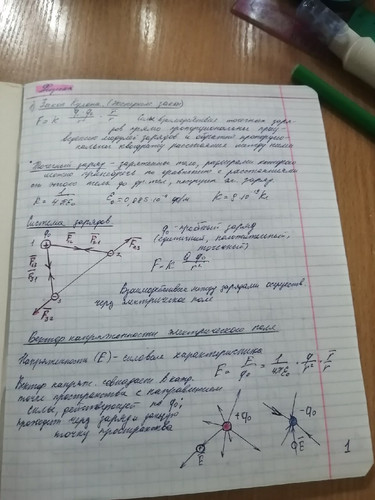 Физика
1) Закон Кулона (эксперим. закон)
F = K q q₀ / r² · r̅ / r Сила взаимодействия точечных заря-
дов прямо пропорциональна произ
ведению модулей зарядов и обратно пропорцио-
нальна квадрату расстояния между ними
Точечный заряд - заряженное тело, размерами которого
можно пренебречь по сравнению с расстояниями
от этого тела до др. тел, несущих эл. заряд
K = 1 / 4πε₀
Система зарядов
q₀ - пробный заряд
(единичный, положительный,
точечный)
F = K q q₀ / r²
Взаимодействие между зарядами осуществ.
через электрическое поле
Вектор напряженности электрического поля
Напряженность (E) - силовая характеристика
F = E / q₀ = 1 / 4πε₀ · q / r² · r̅ / r
Вектор напряж. совпадает в кажд.
точке пространства с направлением
силы, действующей на q₀,
проходит через заряд и данную
точку пространства
+q₀
-q₀
E̅
E̅
1